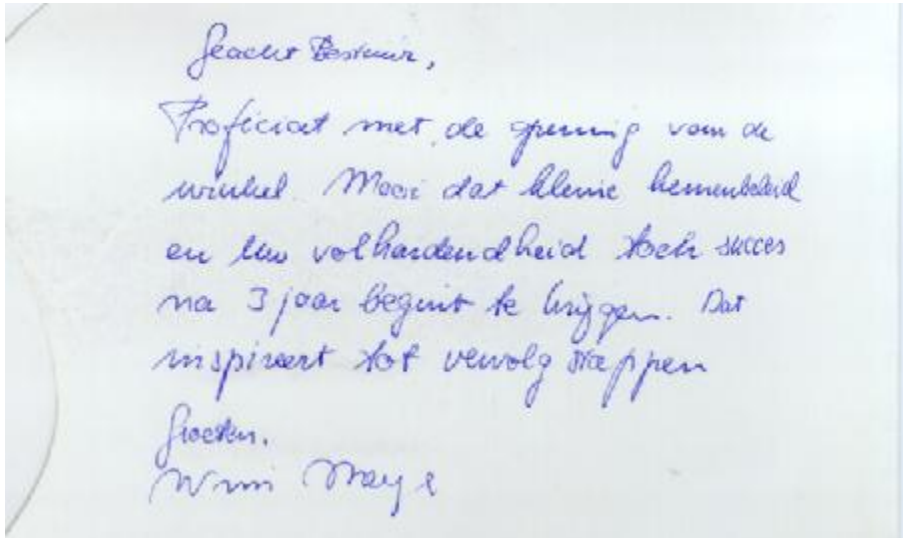 Geacht Bestuur,
Proficiat met de opening van de
winkel. Mooi dat kleine kernenbeleid
en Uw volhardendheid toch succes
na 3 jaar begint te krijgen. Dat
inspireert tot vervolg stappen
Groeten,
Wim